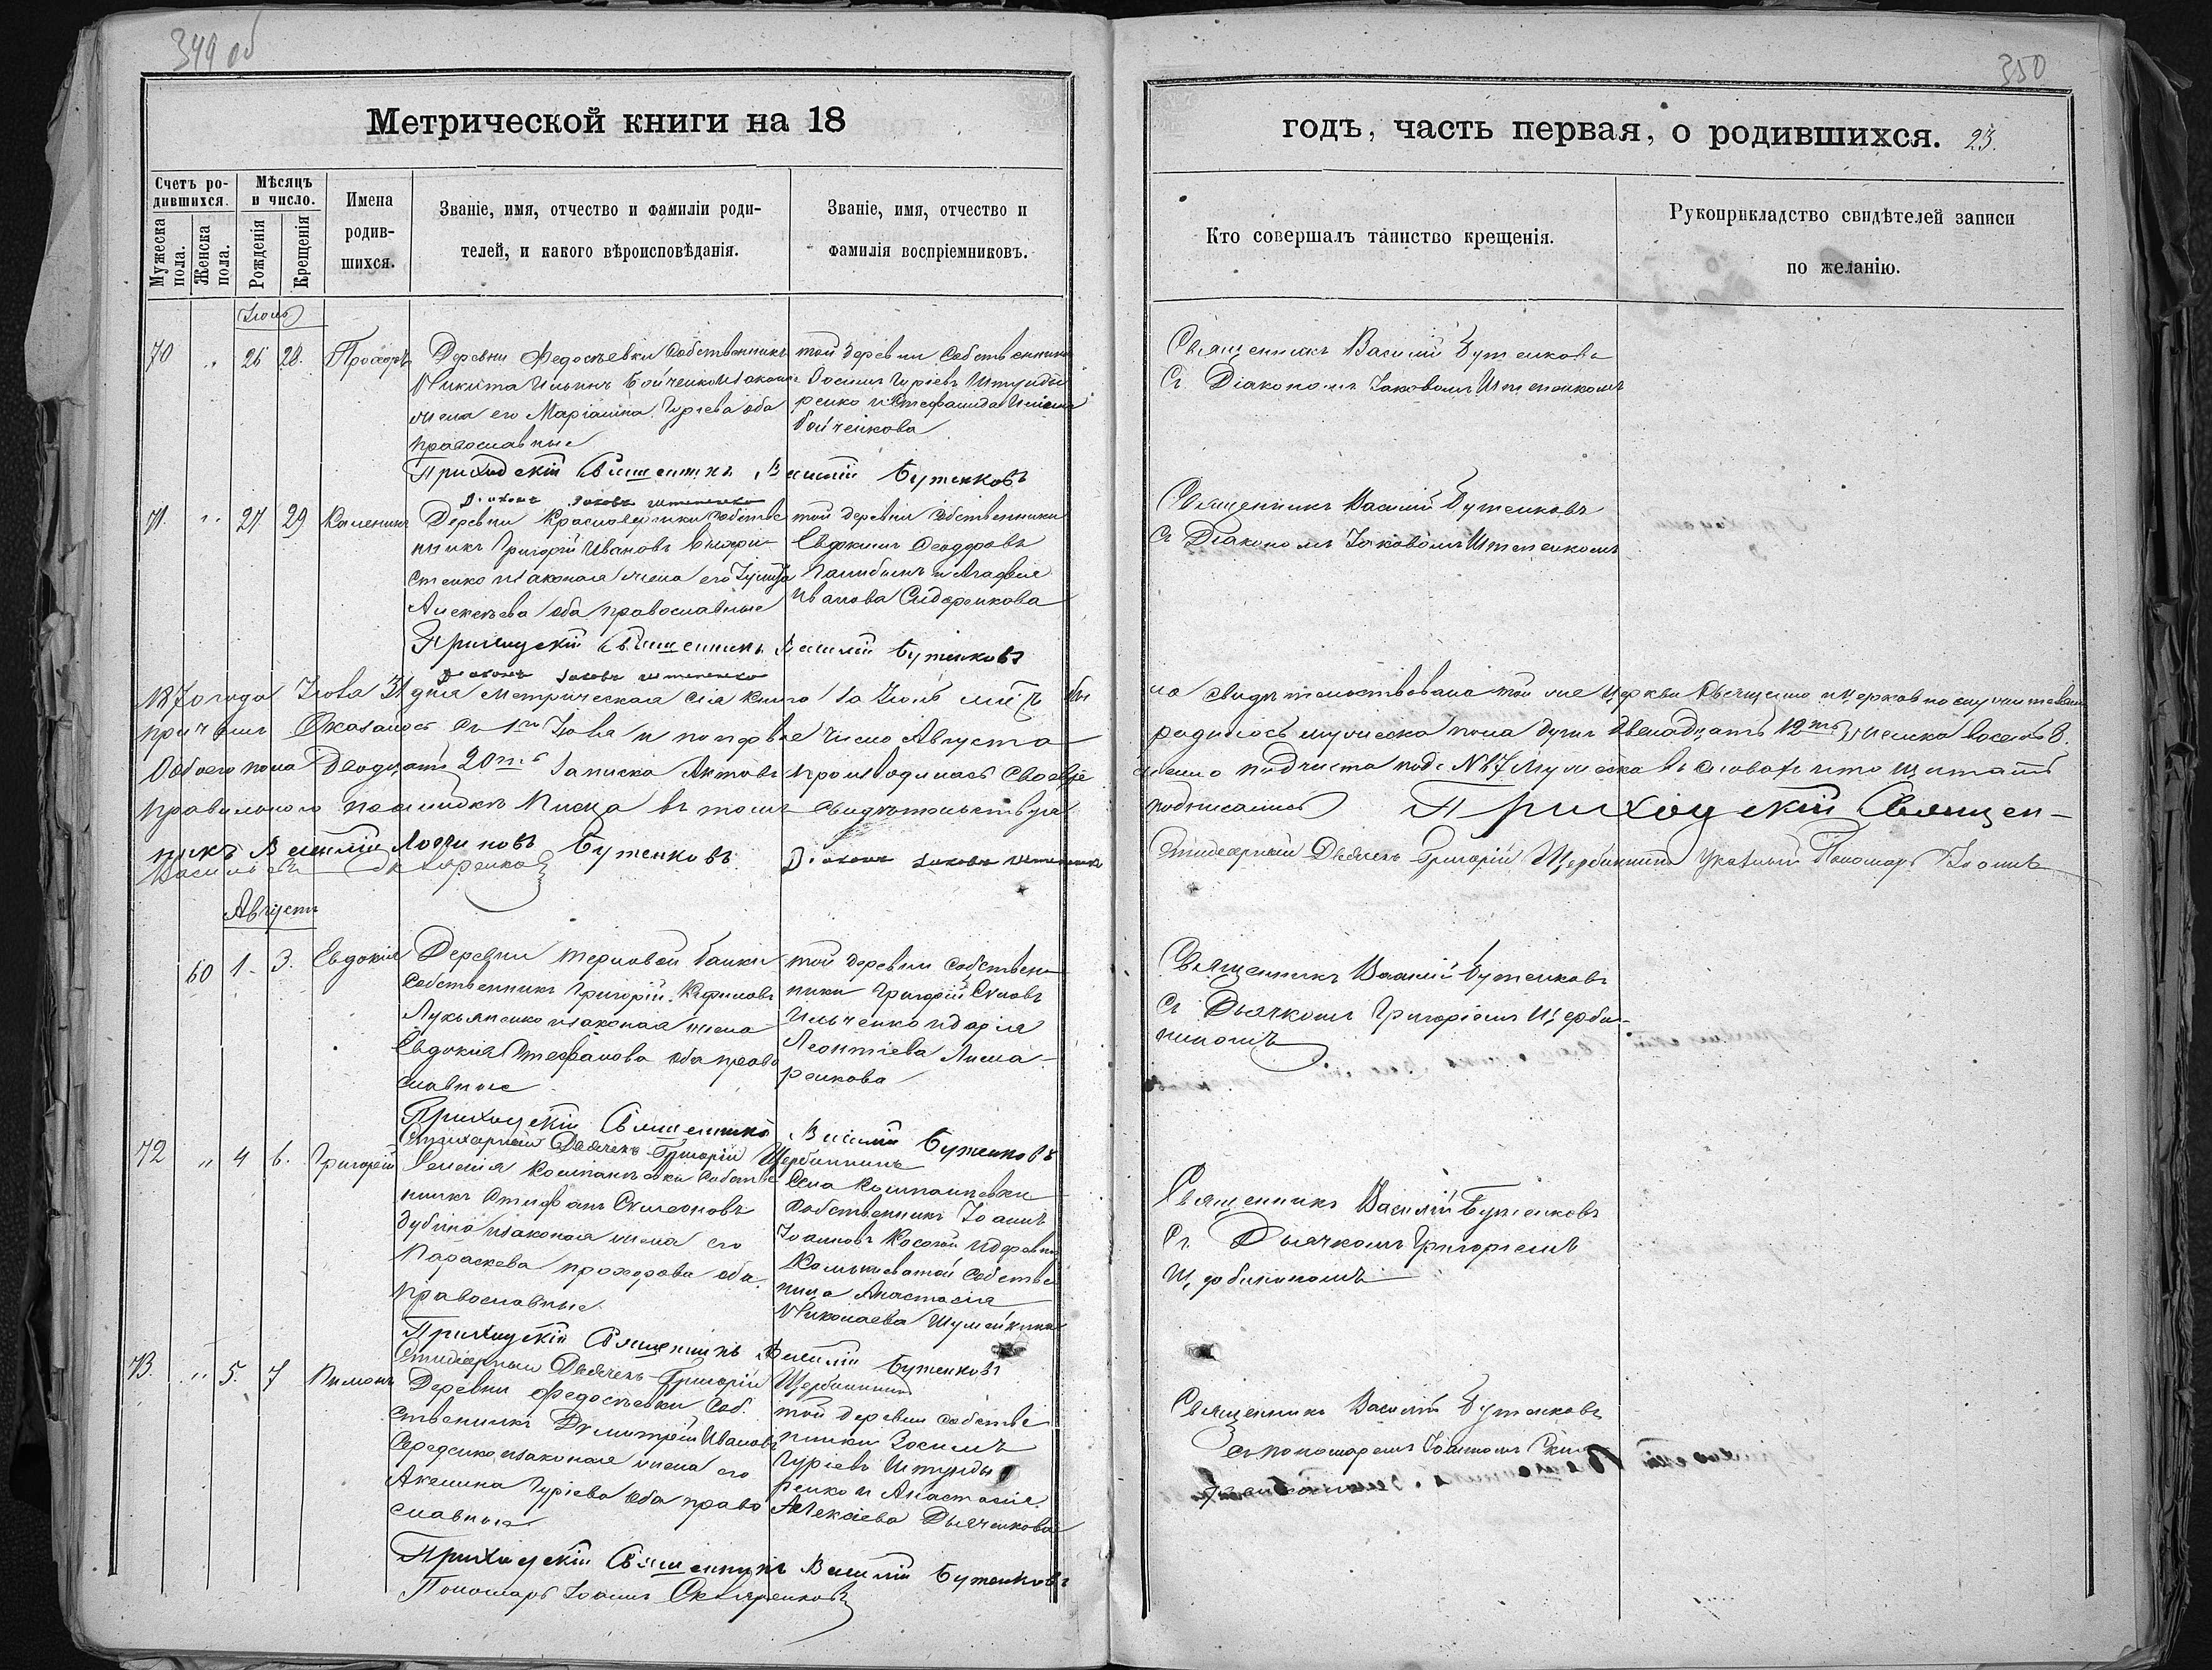 349 об
350
Метрической книги на 18
годъ, часть первая, о родившихся. 23.
Счетъ ро-
дившихся.
Мужеска
пола.
Женска
пола.
Мѣсяцъ
и число.
Рожденія
Крещенія
Имена
родив-
шихся.
Званіе, имя, отчество и фамиліи роди-
телей, и какого вѣроисповѣданія.
Званіе, имя, отчество и
фамилія воспріемниковъ.
Кто совершалъ таинство крещенія.
Рукоприкладство свидѣтелей записи
по желанію.
Іюль
70 " 26 28. Прохоръ
Деревни Федосѣевки Собственникъ
Никита Ильинъ Бойченко и законная
жена его Маріамна Гуріева оба
православные
той деревни Собственники
Зосимъ Гуріевъ Штунды
ренко и Стефанида Ильина
Бойченкова
Священникъ Василій Бутенковъ
Съ Діакономъ Іаковомъ Штепенкомъ
Приходскій Священникъ Василій Бутенковъ
Діаконъ Іаковъ Штепенко
71. " 27 29 Каленикъ
Деревни Красновершки собстве
нникъ Григорій Ивановъ
стенко и законная жена его
Алексѣева оба православные
той деревни Собственники
Евдокимъ Ѳеодоровъ
и Агафія
Иванова Сидоренкова
Священникъ Василій Бутенковъ
Съ Діакономъ Іаковомъ Штепенкомъ
Приходскій Священникъ Василій Бутенковъ
Діаконъ Іаковъ Штепенко
1870 года Іюля 31 дня Метрическая сія книга за Іюль мѣс. бы
ла свидѣтельствована той же церкви Священно и церковнослужителями
причемъ Оказалось Съ 1го Іюля и по первое число Августа
родилось мужеска пола душъ двенадцать 12ть женска восемь 8.
Обоего пола Двадцать 20ть Записка Актовъ производилась Своевре
менно подчистка подъ № 67 Мужеска въ словахъ читать
правильно по ошибкѣ Писца въ томъ Свидѣтельствуя
подписались Приходскій Священ-
никъ Василій Логгиновъ Бутенковъ Діаконъ Іаковъ Штепенко
Стихарный Дьячекъ Григорій Щербининъ Указный Пономарь Іоаннъ
Васильевъ
Августъ
60 1. 3. Евдокія
Деревни Терновой балки
Собственникъ Григорій
Лукьяненко и законная жена
Евдокія Стефанова оба право
славные
той деревни собствен
ники Григорій
Ильченко и Дарія
Леонтіева Лима-
ренкова
Священникъ Василій Бутенковъ
Съ Дьячкомъ Григоріемъ Щерби-
ниномъ
Приходскій Священникъ Василій Бутенковъ
Стихарный Дьячекъ Григорій Щербининъ
72 " 4 6. Григорій
Селенія Компанѣевки Собстве
нникъ Стефанъ Симеоновъ
Дубина и законная жена его
Параскева Прохорова оба
православные
Села Компанѣевки
Собственникъ Іоаннъ
Іоанновъ Косогой и деревни
Камышеватой Собстве
нница Анастасія
Николаева
Священникъ Василій Бутенковъ
Съ Дьячкомъ Григоріемъ
Щербининомъ
Приходскій Священникъ Василій Бутенковъ
Стихарный Дьячекъ Григорій Щербининъ
73. " 5. 7 Пименъ
Деревни Федосѣевки Соб.
ственникъ Димитрій Ивановъ
Середенко и законная жена его
Акилина Гуріева оба право
славные
той деревни собстве
нники Зосимъ
Гуріевъ Штунды
ренко и Анастасія
Алексіева Дьяченкова
Священникъ Василій Бутенковъ
съ пономаремъ Іоанномъ
Приходскій Священникъ Василій Бутенковъ
Пономарь Іоаннъ